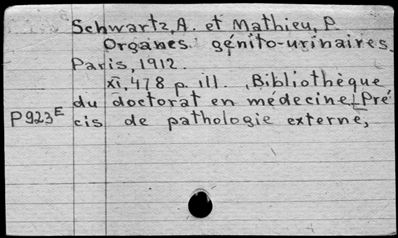 Schwartz, A. et Mathieu, P.
Organes génito-urinaires.
Paris, 1912.
XI, 478 p. ill. , Bibliothèque
du doctorat en médecine, Pré
P923E cis de pathologie externe,